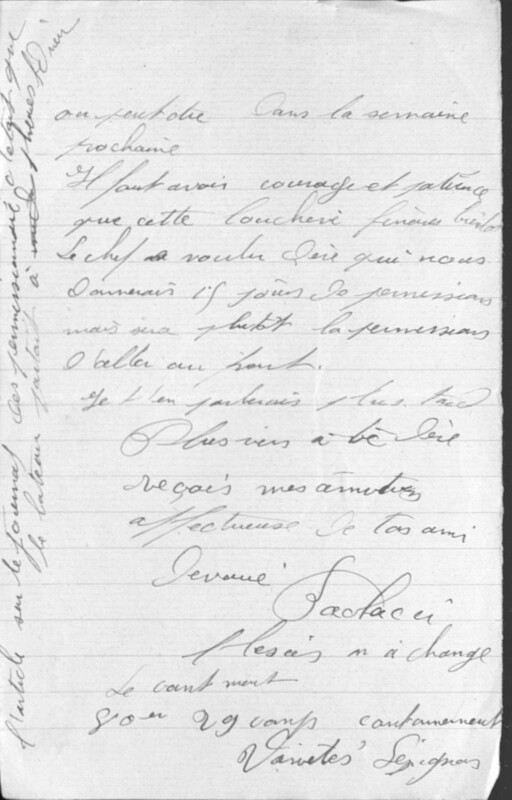 ou peut dre Dans la semaine
prochaine
Il faut avoir courage et patience
que cette boucherie finira bientot
Le chef a voulu Dire qui nous
Donnerais 15 jours De permissions
mais sera plutot la permissions
D'aller au front.
Je t'en parlerais plus tard
Plus rien a te Dire
reçois mes amities
affectueuse De ton ami
Devoué
n a change
Le cantonnement
29 camp cantonnement
Varietes
L'article sur le journal Des permissionnaire c'etait que
le bateau partait à heures